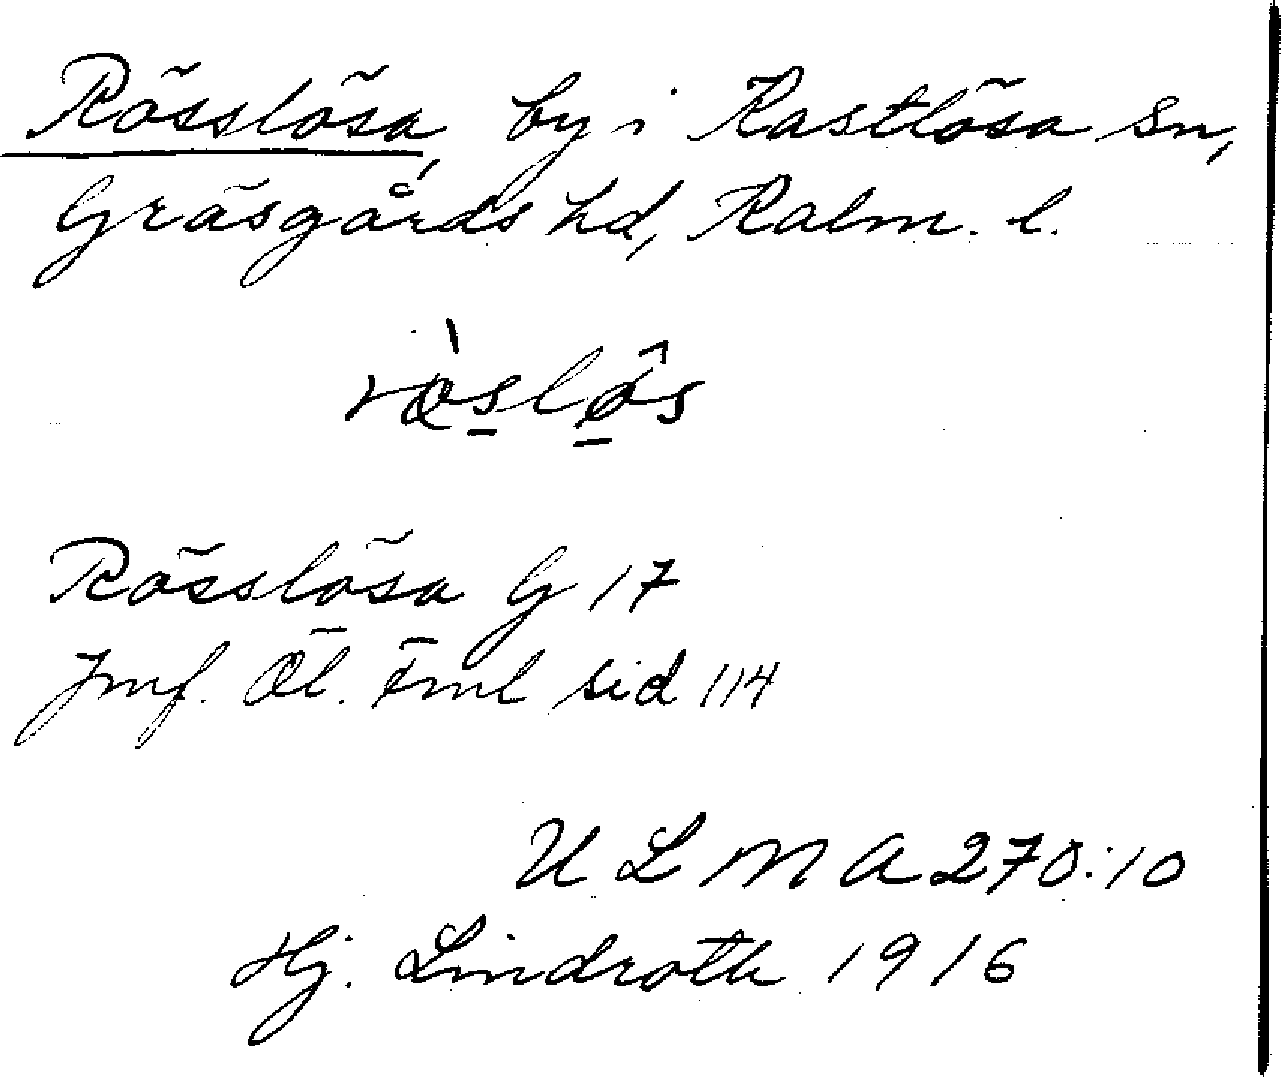 Rösslösa, by i Kastlösa sn,
Gräsgårds hd, Kalm. l.
Rösslösa G 17
Jmf. Öl. Fml sid 114
U L M A 270:10
Hj. Lindroth 1916